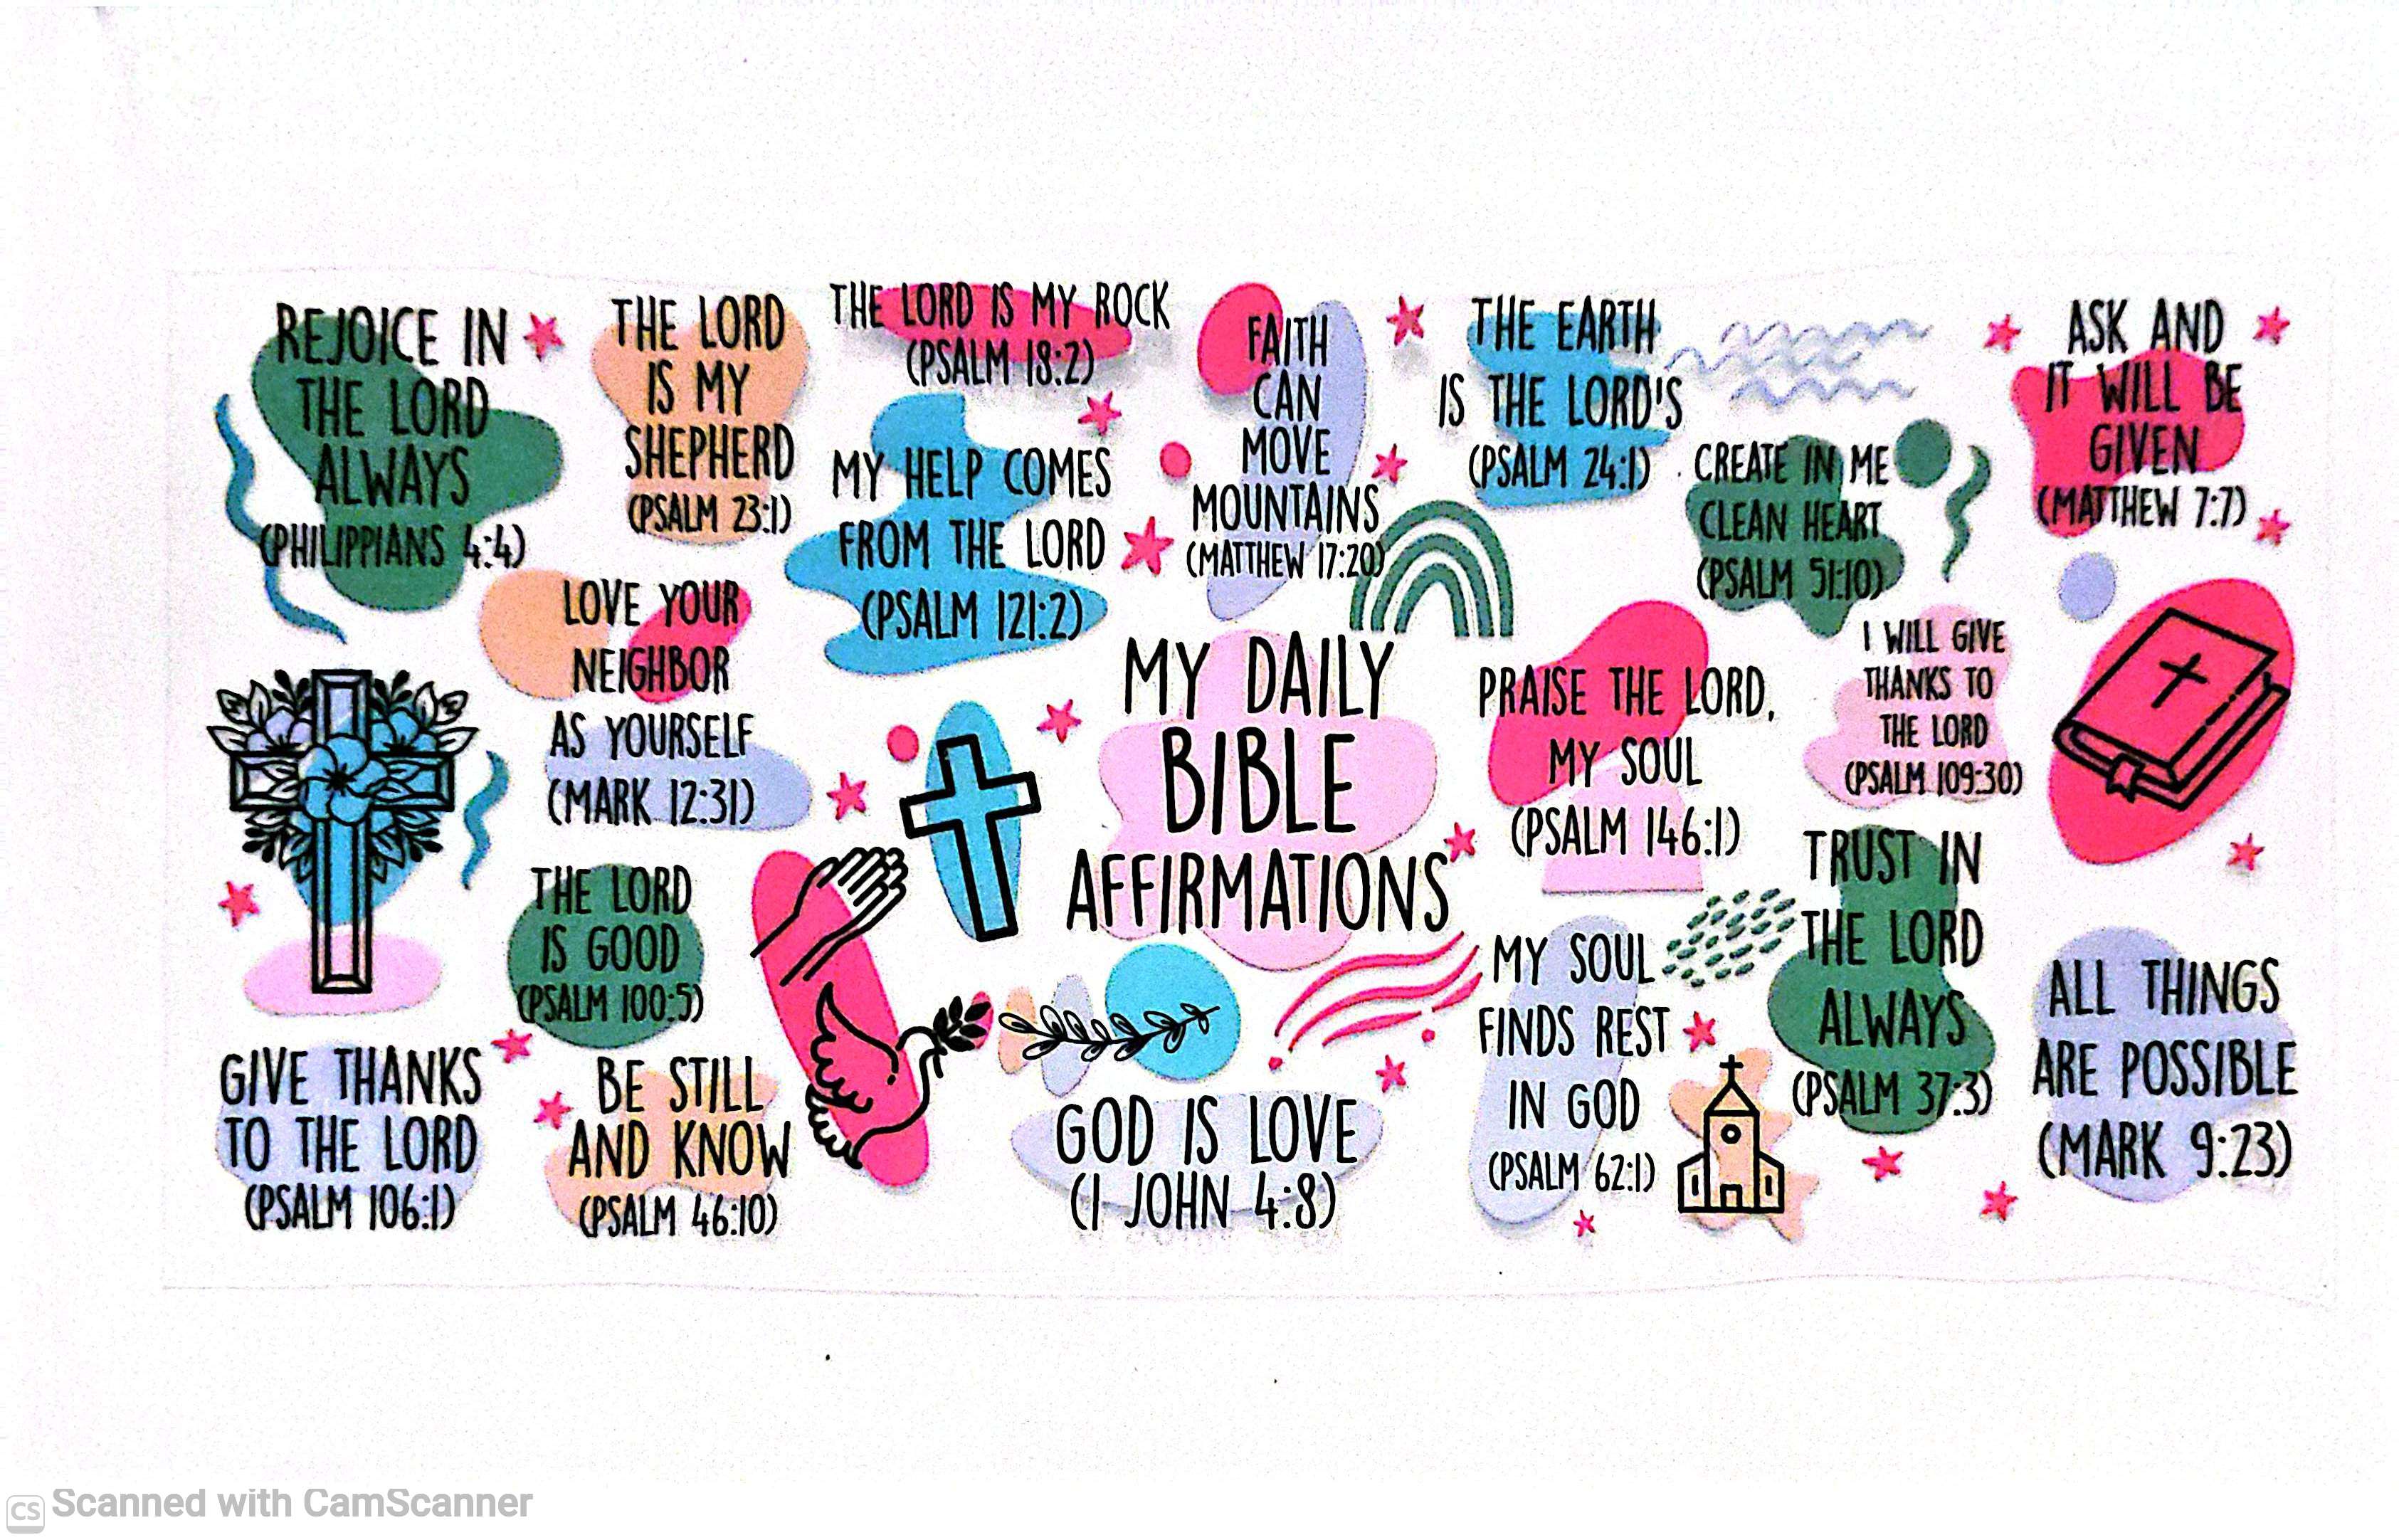 REJOICE IN
THE LORD
ALWAYS
(PHILIPPIANS 4:4)
THE LORD
IS MY
SHEPHERD
(PSALM 23:1)
THE LORD IS MY ROCK
(PSALM 18:2)
FAITH
CAN
MOVE
MOUNTAINS
(MATTHEW 17:20)
THE EARTH
IS THE LORD'S
(PSALM 24:1)
ASK AND
IT WILL BE
GIVEN
(MATTHEW 7:7)
MY HELP COMES
FROM THE LORD
(PSALM 121:2)
CREATE IN ME
CLEAN HEART
(PSALM 51:10)
LOVE YOUR
NEIGHBOR
AS YOURSELF
(MARK 12:31)
MY DAILY
BIBLE
AFFIRMATIONS
PRAISE THE LORD,
MY SOUL
(PSALM 146:1)
I WILL GIVE
THANKS TO
THE LORD
(PSALM 109:30)
THE LORD
IS GOOD
(PSALM 100:5)
TRUST IN
THE LORD
ALWAYS
(PSALM 37:3)
MY SOUL
FINDS REST
IN GOD
(PSALM 62:1)
ALL THINGS
ARE POSSIBLE
(MARK 9:23)
GIVE THANKS
TO THE LORD
(PSALM 106:1)
BE STILL
AND KNOW
(PSALM 46:10)
GOD IS LOVE
(1 JOHN 4:8)
CS Scanned with CamScanner